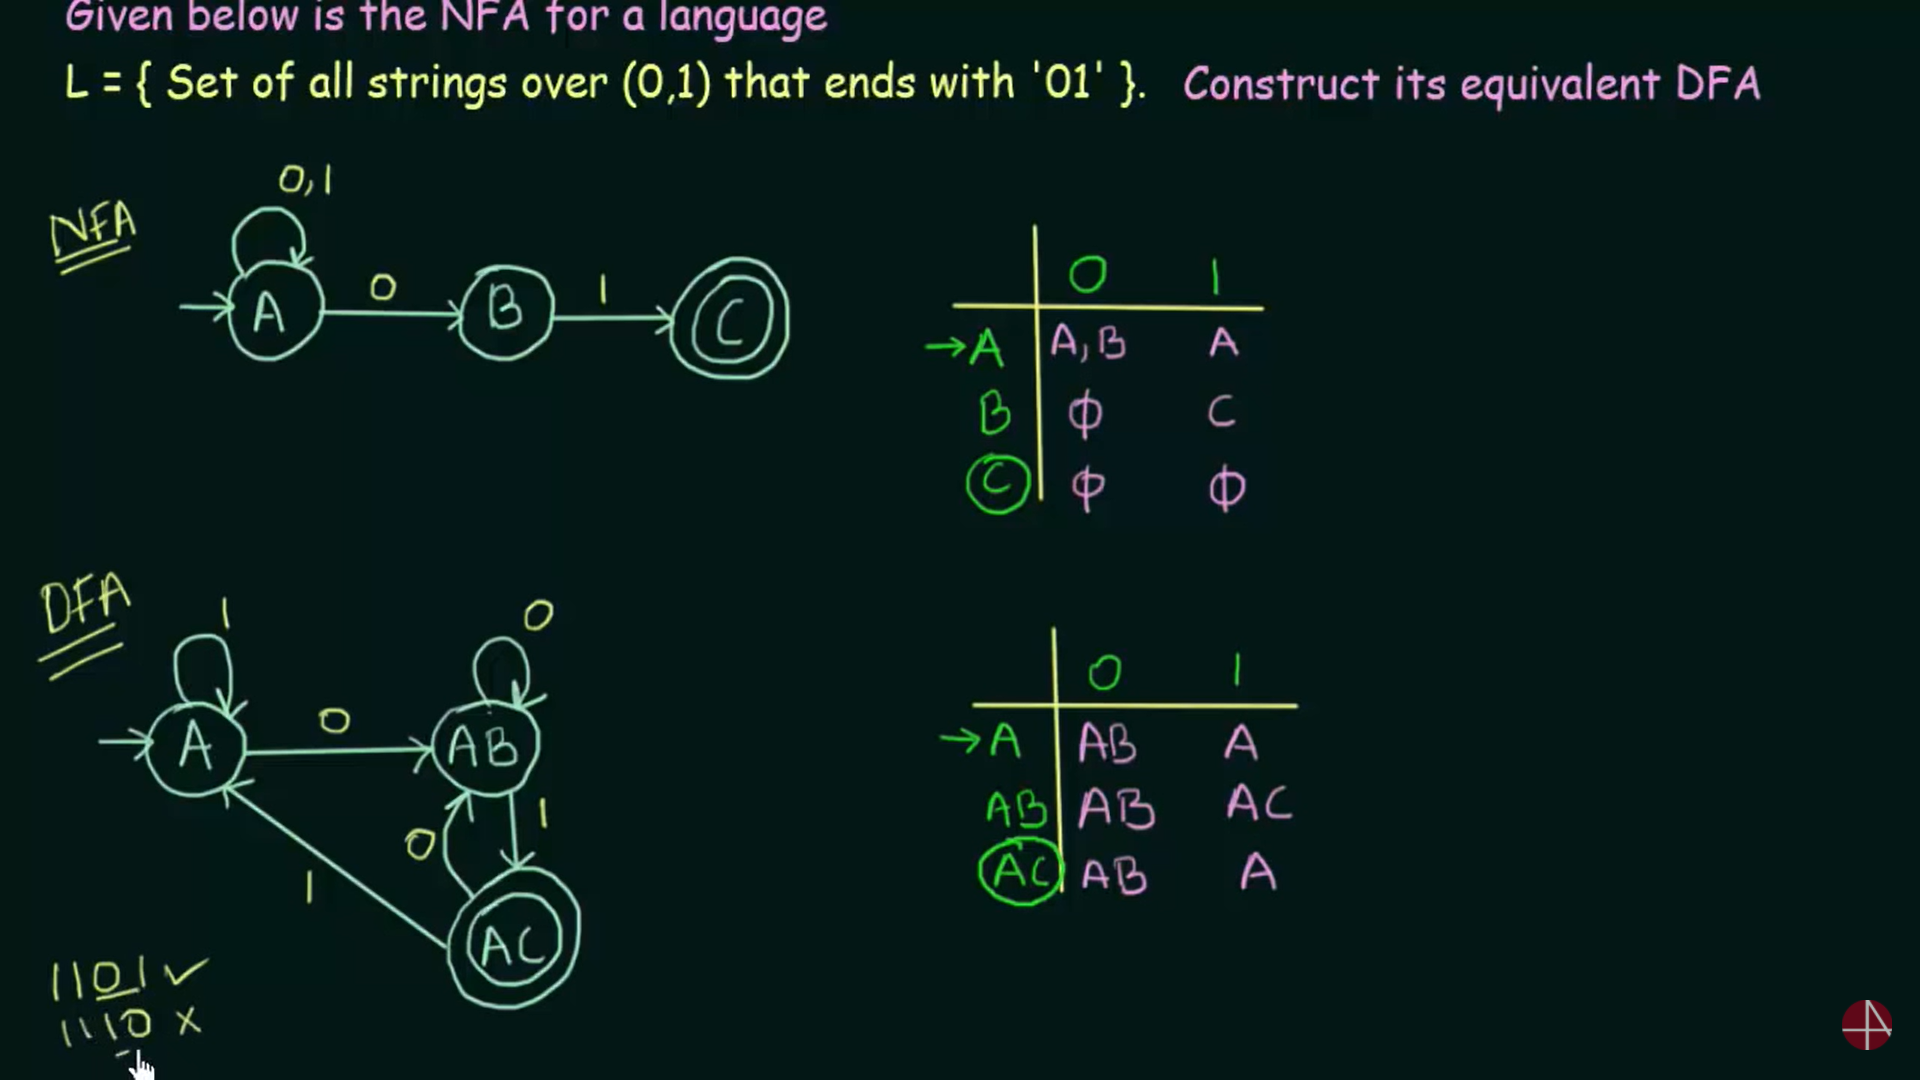 Given below is the NFA for a language
L = { Set of all strings over (0,1) that ends with '01' }. Construct its equivalent DFA
NFA
0,1
A
0
B
1
C
0 1
→A A,B A
B Φ C
C Φ Φ
DFA
1
0
A
0
AB
1
0
1
AC
0 1
→A AB A
AB AB AC
AC AB A
1101 ✓
1110 x